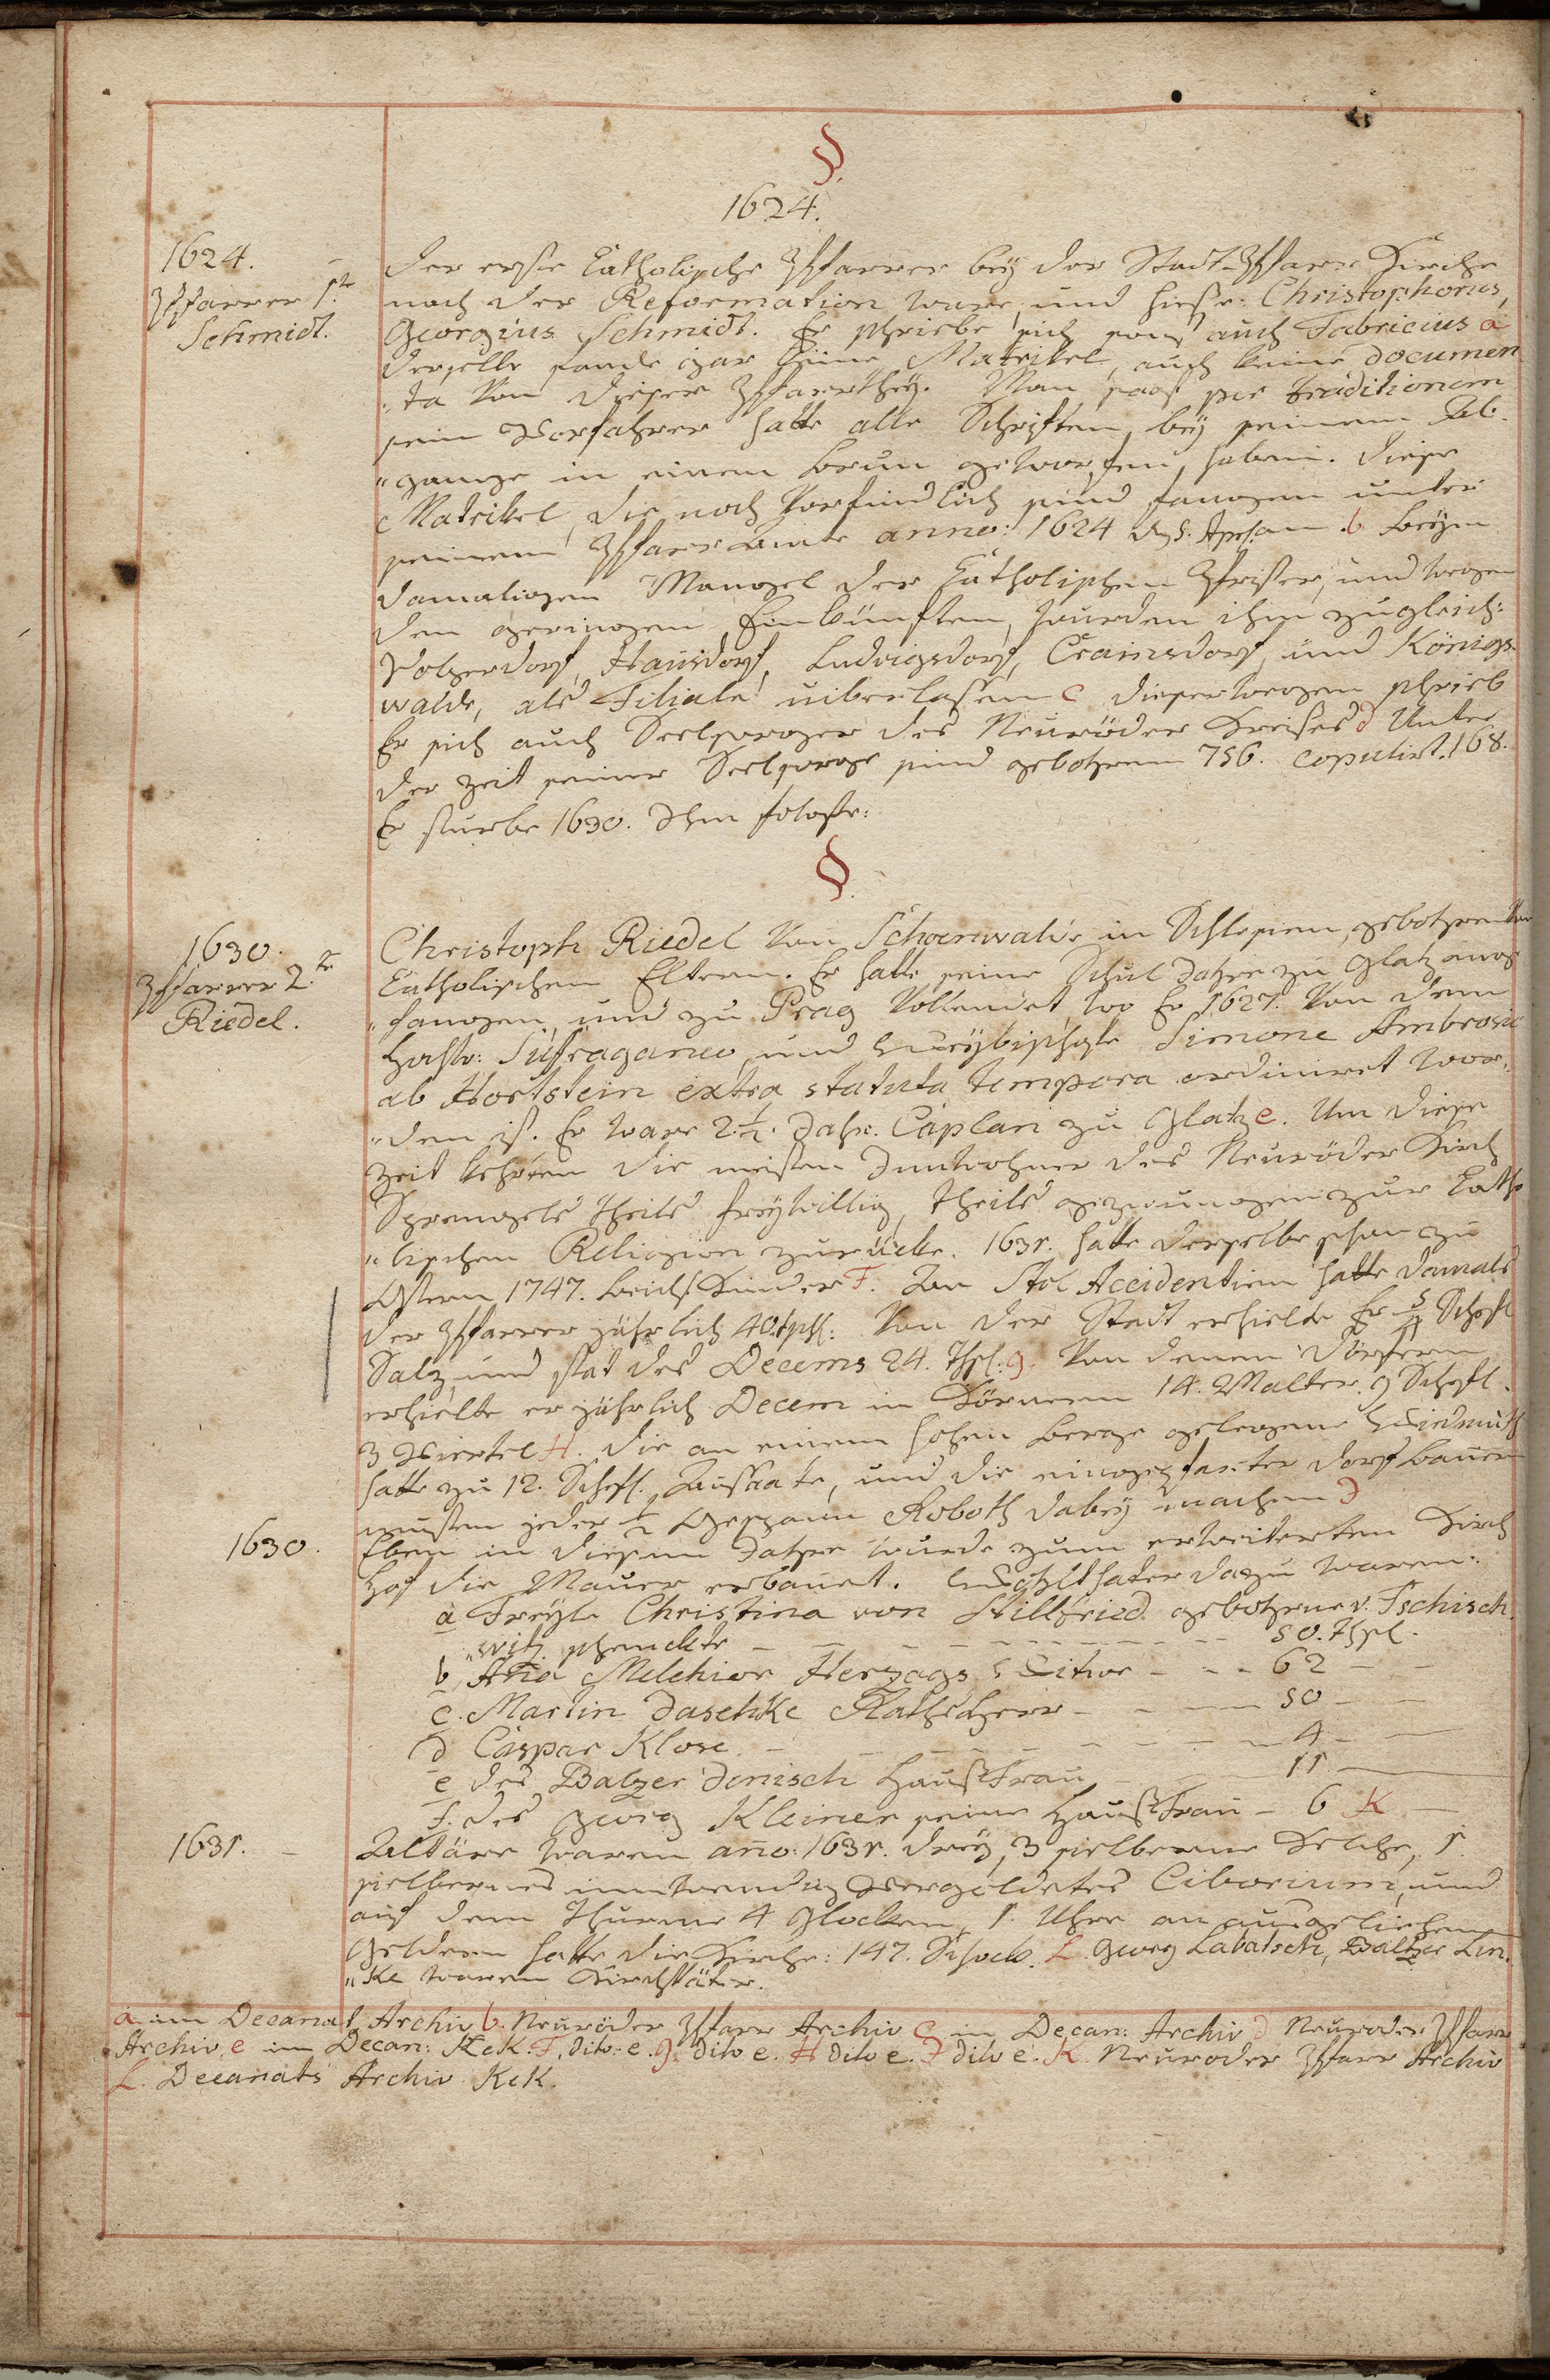 §.
1624.
1624.
Pfarrer 1.te
Schmidt.
Der erste Catholische Pfarrer bey der Stadt-Pfarr Kirche
nach der Reformation ware, und hieße: Christophorus,
Georgius Schmidt. Er schriebe sich sonst auch Fabricius a
derselbe fande gar keine Matrikel, auch keine documen
"ta von dieser Pfarrthey. Man sagt per traditionem
sein Vorfahrer hatte alle Schriften, bey seinem Ab-
"gange in einem Brun geworfen, haben. Diese
Matrikel, die noch vorfindlich sind fangen unter
seinem Pfarr Amte anno: 1624 d. 5. Apr. an. b Beym
damaligen Mangel der Catholischen Prister, und wegen
den geringen Einkünften, wurden ihm zugleich:
Volperdorf, Hausdorf, Ludwigsdorf, Crainsdorf, und Königs-
walde, als Filiale überlassen c dieserwegen schrieb
Er sich auch Seelsorger des Neuröder Kreises d Unter
der Zeit seiner Seelsorge sind gebohren 756. copulirt. 168.
Er sturbe 1630. Ihm folgte:
§.
1630.
Pfarrer 2.te
Riedel.
Christoph Riedel von Schoenwalde in Schlesien, gebohren von
Catholischen Eltern. Er hatte seine Schul Jahre zu Glatz ange
"fangen, und zu Prag vollendet, wo Er 1627. von dem
Hochw: Sufraganeo, und Weybischofe Simone Ambrosio
ab Hortstein extra statuta tempora ordiniret wor-
"den ist. Er ware 2 ½. Jahr. Caplan zu Glatz e. Um diese
Zeit kehrten die meisten Innwohner des Neuröder Kirch
Sprengels theils freywillig, theils gezwungen zur Catho
"lischen Religion zurücke. 1631. hatte derselbe schon zu
Ostern 1747. Beicht Kinder F. An Stol Accidentien hatte damals
der Pfarrer jährlich 40. Thl: Von der Stadt erhielte Er Schefl
Salz und stat des Decems 24. Thl: g. Von denen Dörfern
erhielte er jährlich Decem in Körnern 14. Malter. 9 Schefl.
3 Viertel H. Die an einem hohen Berge gelegene Wiedmuth
hatte zu 12. Schefl. Aussaate, und die eingepfarrter Dorf Bauern
musten jeder ½ Gespann Roboth dabey machen J
1630.
Eben in diesem Jahre wurde zum erweiterten Kirch
Hof die Mauer erbauet. Wohlthater dazu waren:
a Freyle Christina von Stillfried gebohrne v. Tschisch-
"witz schenckte - - - 50. Thl.
b, Aña Melchior Herzags Witwe - - - 62 - -
c. Martin Jaschke Rathsherr - - - 50 - -
d Caspar Klose - - - 4 - -
e des Balzer Jenisch Hauß Frau - - - 11 -
f. des Georg Kleiner seine Hauß Frau - 6 K -
1631. -
Altäre waren año: 1631. drey, 3 silberne Kelche, 1.
silbernes innwendig vergoldetes Ciborium, und
auf dem Thurme 4 Glocken, 1. Uhr an ausgeliehenen
Geldern hatte die Kirche: 147. Schock. L. Georg Labatsch, Baltzer Lin-
"ke waren Kirchväter.
a. im Decanat Archiv b. Neuröder Pfarr Archiv C in Decan: Archiv d Neuroder Pfarr
Archiv. e im Decan: KcK. F, dito: e. g. dito e. H dito e. J dito e. K. Neuroder Pfarr Archiv
L. Decanats Archiv KcK.